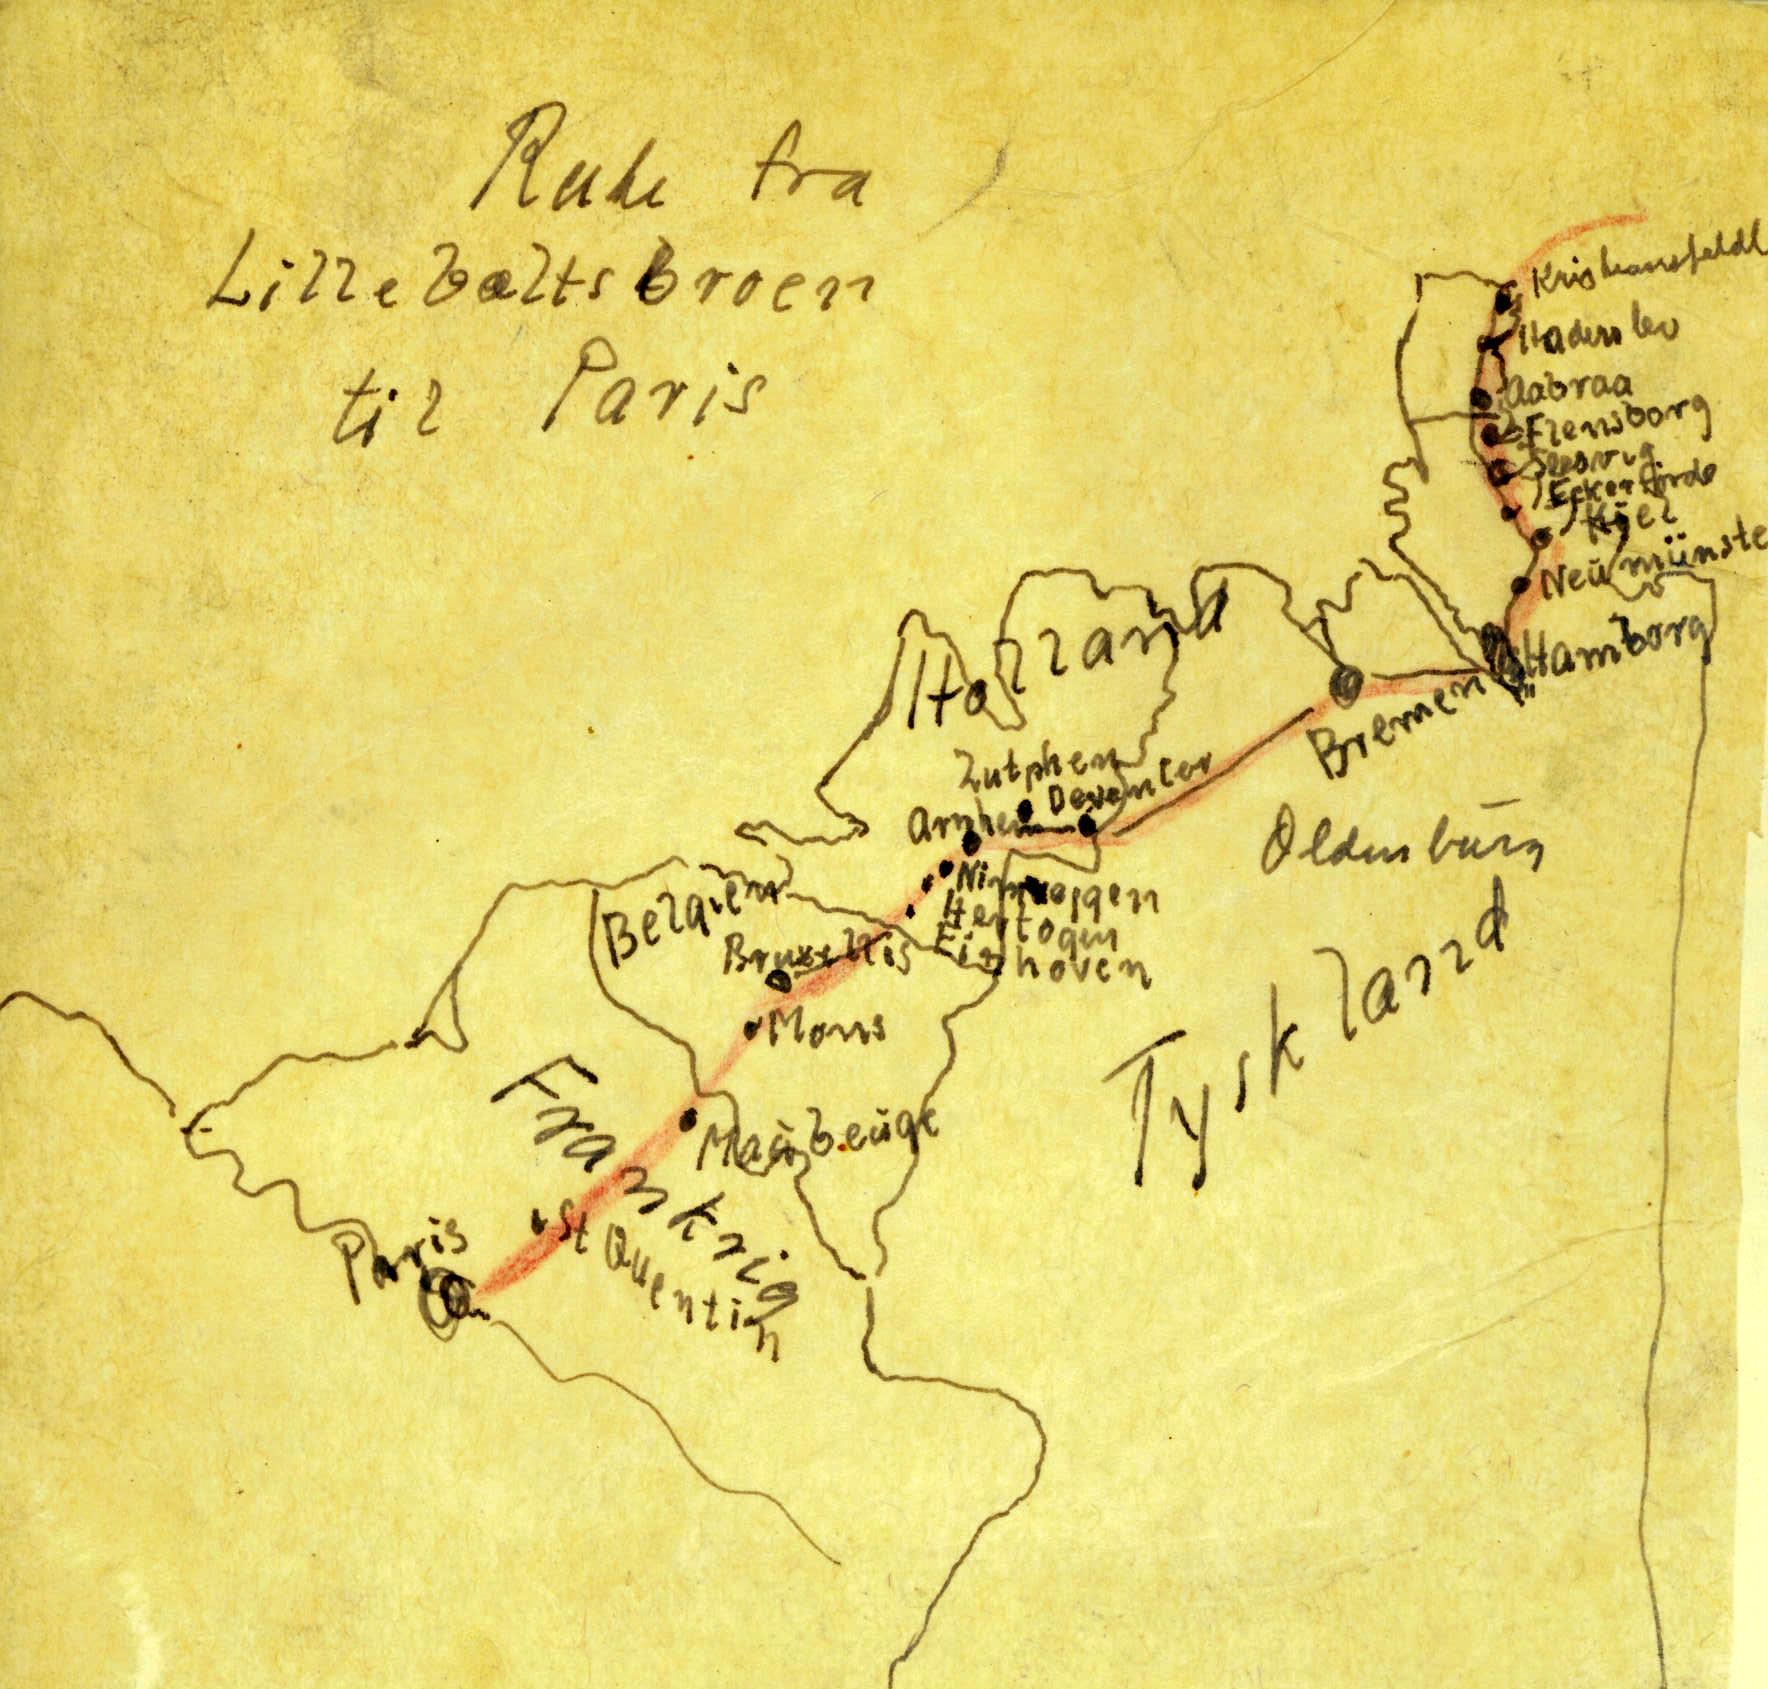 Rute fra
Lillebæltsbroen
til Paris
Kristiansfeldt
Haderslev
Aabraa
Flensborg
Slesvig
Eckernförde
Kiel
Neümünste
Hamborg
Bremen
Holland
Zutphen
Deventer
Arnhem
Oldenbürg
Nimwegen
Hertogen
Einhoven
Belgien
Bruxelles
Mons
Tyskland
Frankrig
Maübeüge
St Quentin
Paris